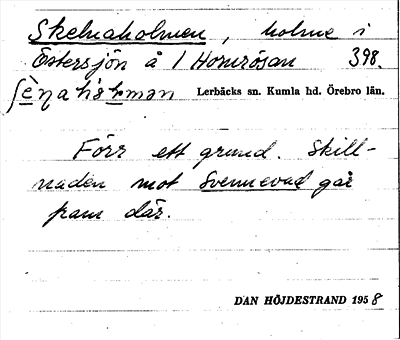 Skelnaholmen, holme i
Östersjön å 1 Homrösan 398.
Lerbäcks sn. Kumla hd. Örebro län.
Förr ett grund. Skill-
naden mot Svennevad går
fram där.
DAN HÖJDESTRAND 1958